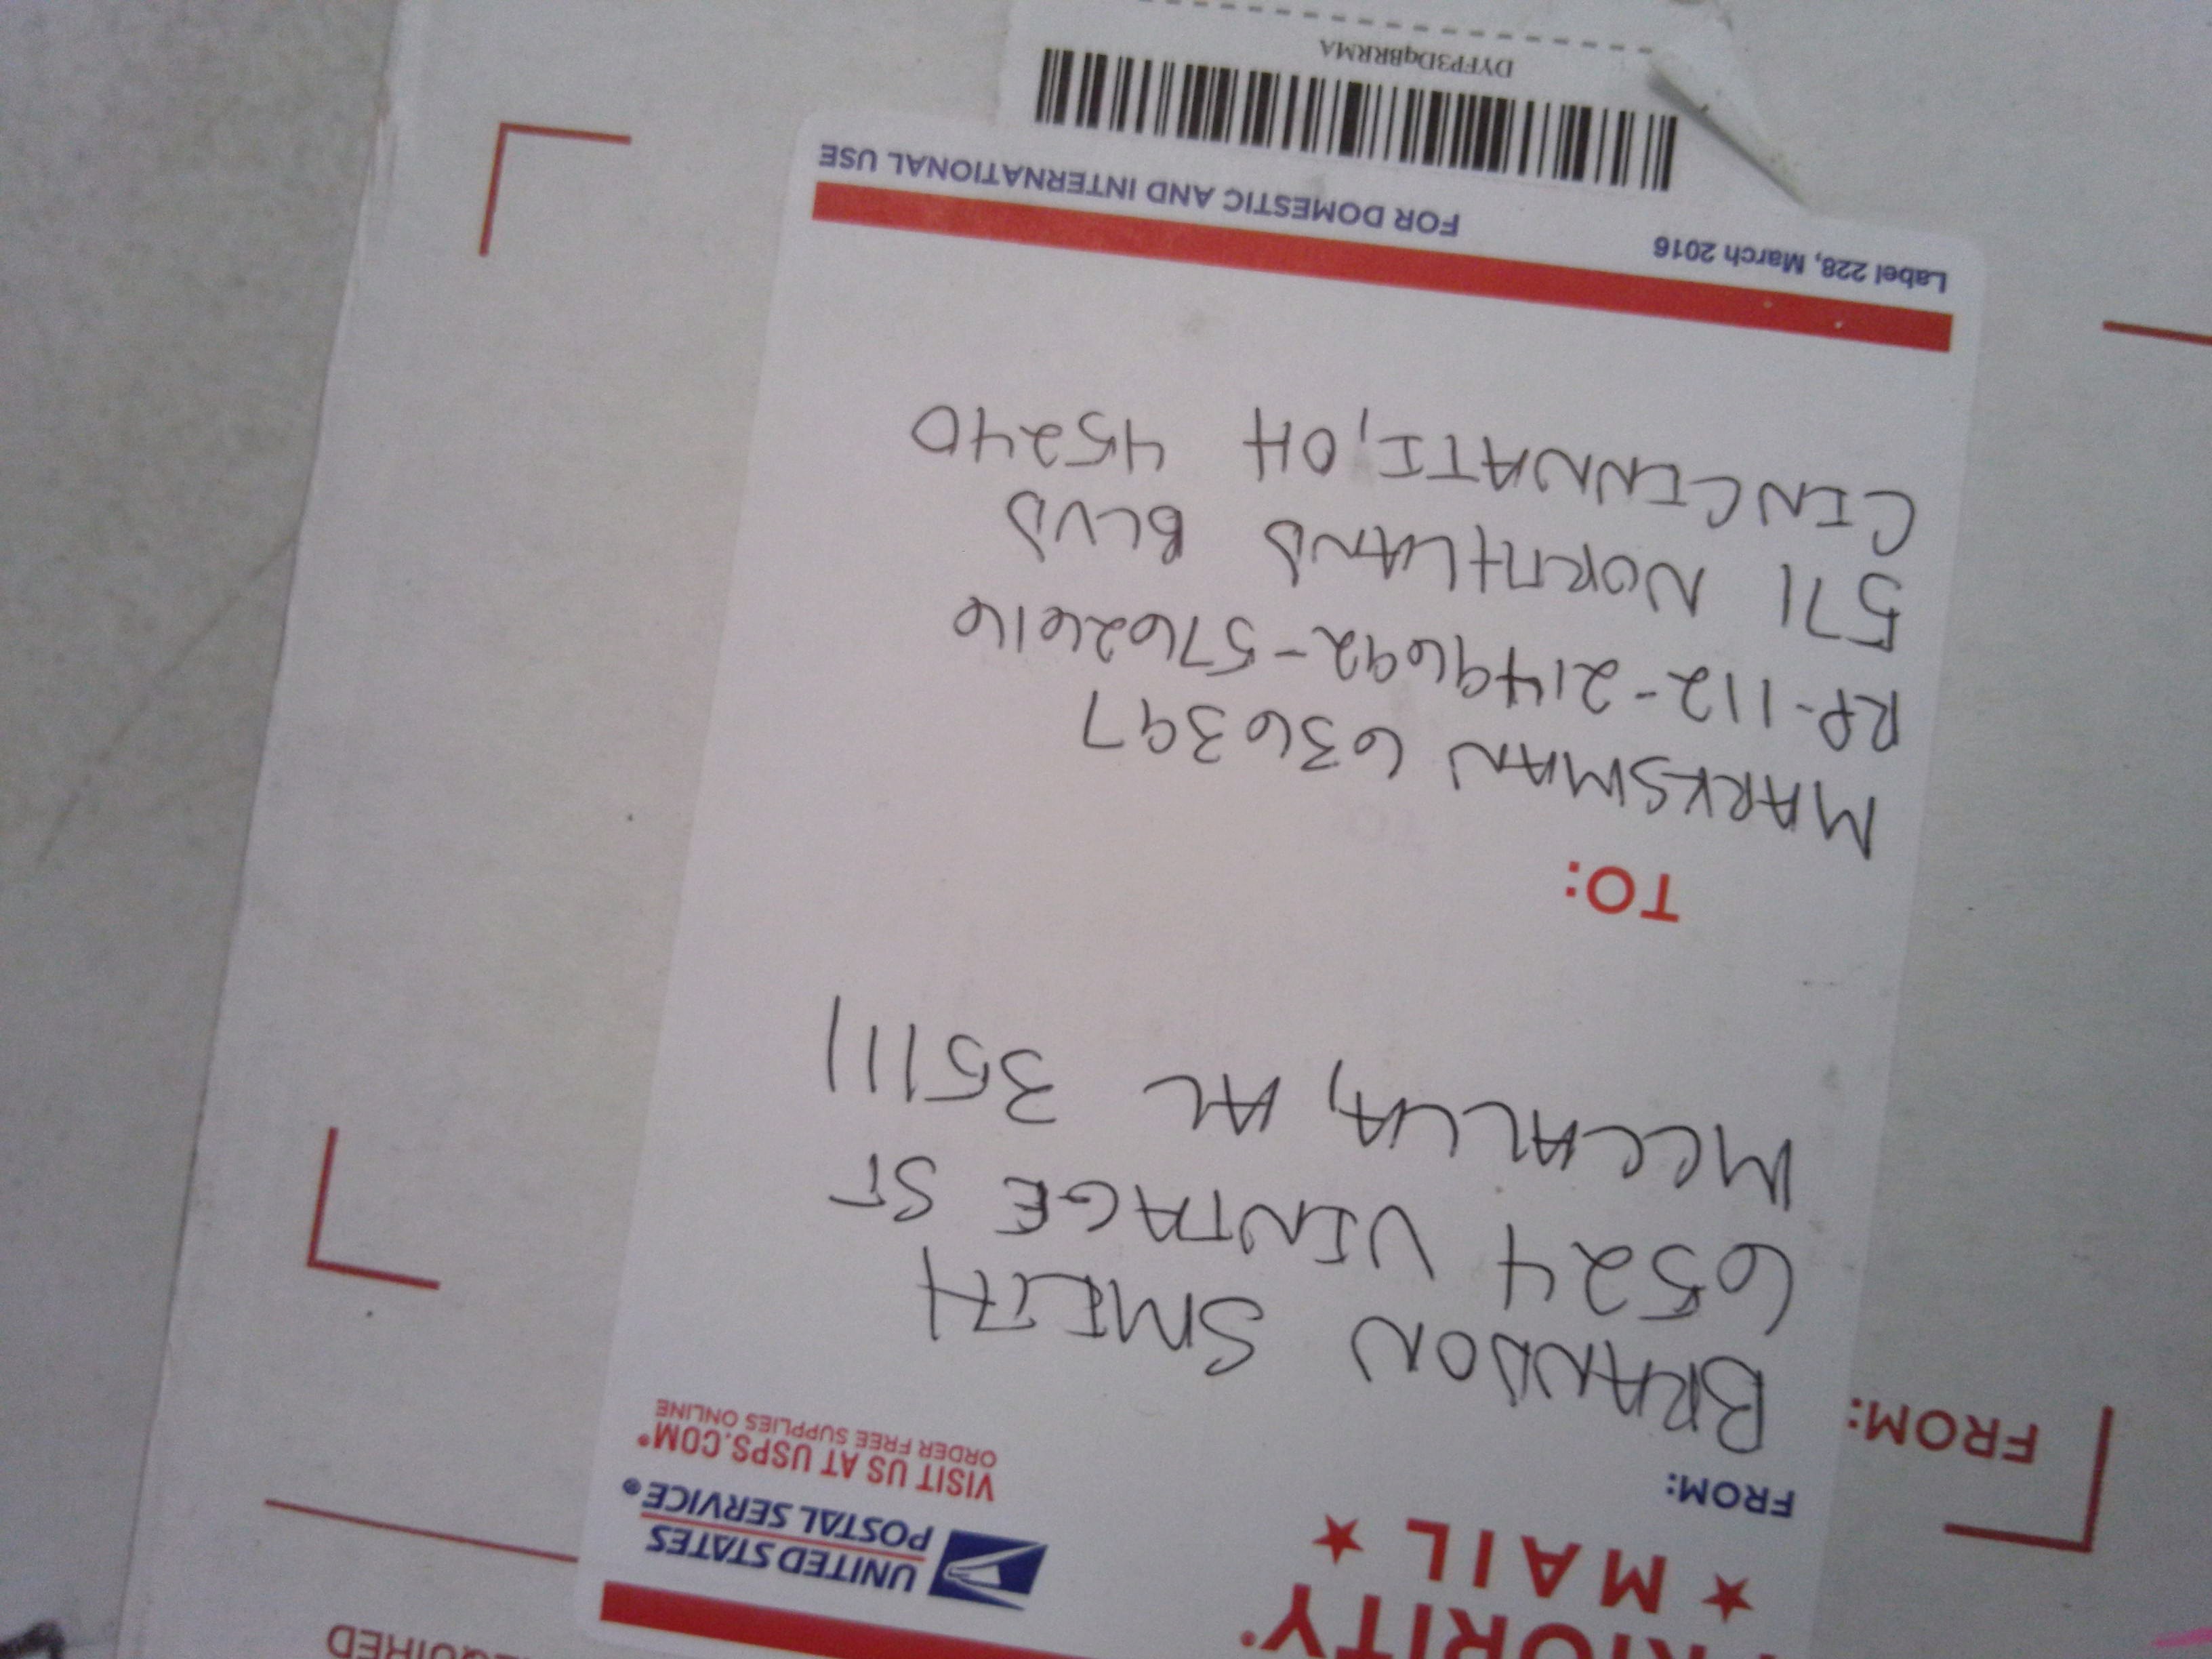 PRIORITY®
★ MAIL ★
UNITED STATES
POSTAL SERVICE®
VISIT US AT USPS.COM®
ORDER FREE SUPPLIES ONLINE
FROM:
FROM:
BRANDON SMITH
6524 VINTAGE ST
MCCALLA, AL 35111
TO:
MARKSMAN 636397
RP-112-21496692-57626616
571 NORTHLAND BLVD
CINCINNATI, OH 45240
Label 228, March 2016
FOR DOMESTIC AND INTERNATIONAL USE
DYFP3DqBRRMA